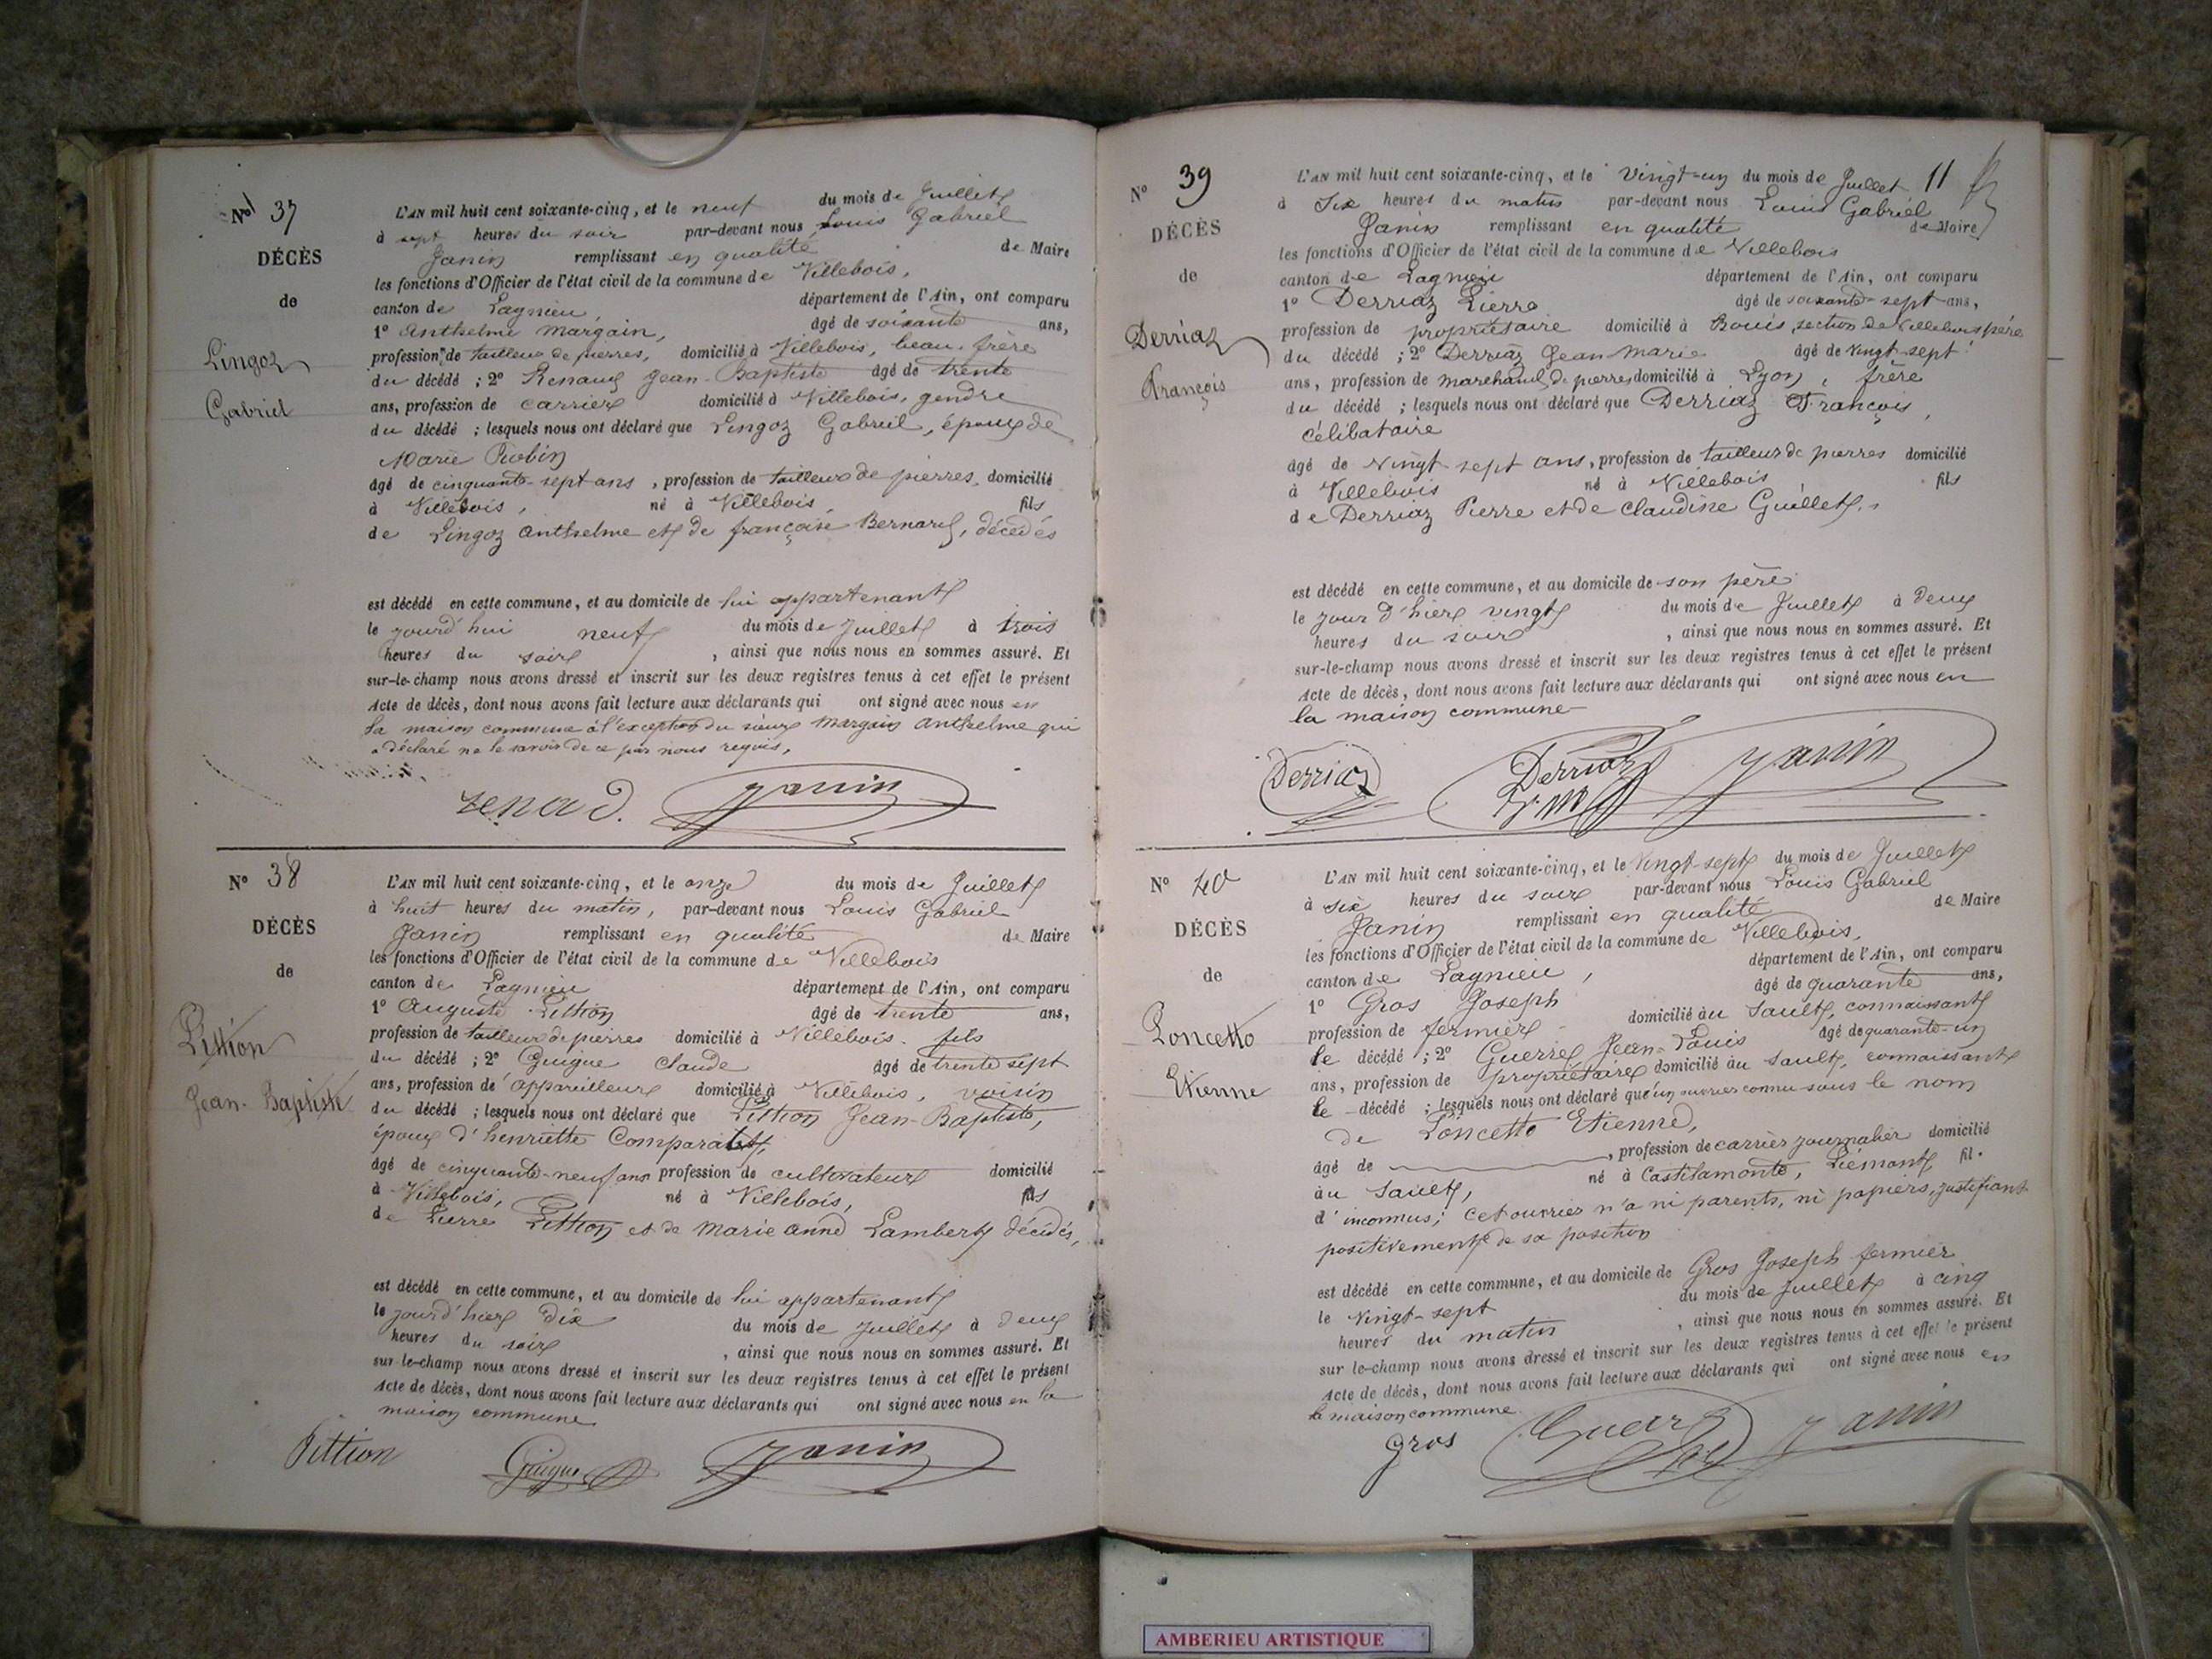 N° 37
DÉCÈS
de
Lingoz
Gabriel
L'AN mil huit cent soixante-cinq, et le neuf du mois de Juillet
à sept heures du soir par-devant nous Louis Gabriel
Janin remplissant en qualité de Maire
les fonctions d'Officier de l'état civil de la commune de Villebois,
canton de Lagnieu, département de l'Ain, ont comparu
1° Anthelme Margain, âgé de soixante ans,
profession de tailleur de pierres, domicilié à Villebois, beau-frère
du décédé ; 2° Renaud Jean-Baptiste âgé de trente
ans, profession de carrier domicilié à Villebois, gendre
du décédé ; lesquels nous ont déclaré que Lingoz Gabriel, époux de
Marie Robin
âgé de cinquante-sept ans, profession de tailleur de pierres, domicilié
à Villebois, né à Villebois, fils
de Lingoz Anthelme et de françoise Bernard, décédés
est décédé en cette commune, et au domicile de lui appartenant
le jourd'hui neuf du mois de Juillet à trois
heures du soir, ainsi que nous nous en sommes assuré. Et
sur-le-champ nous avons dressé et inscrit sur les deux registres tenus à cet effet le présent
Acte de décès, dont nous avons fait lecture aux déclarants qui ont signé avec nous en
la maison commune à l'exception du sieur Margain Anthelme qui
a déclaré ne le savoir de ce par nous requis,
renad. Janin
N° 38
DÉCÈS
de
Pittion
Jean-Baptiste
L'AN mil huit cent soixante-cinq, et le onze du mois de Juillet
à huit heures du matin, par-devant nous Louis Gabriel
Janin remplissant en qualité de Maire
les fonctions d'Officier de l'état civil de la commune de Villebois
canton de Lagnieu département de l'Ain, ont comparu
1° Auguste Pittion âgé de trente ans,
profession de tailleur de pierres domicilié à Villebois, fils
du décédé ; 2° Guigue Claude âgé de trente sept
ans, profession d'appareilleur domicilié à Villebois, voisin
du décédé ; lesquels nous ont déclaré que Pittion Jean-Baptiste,
époux d'henriette Comparat,
âgé de cinquante-neuf ans profession de cultivateur domicilié
à Villebois, né à Villebois, fils
de Pierre Pittion et de Marie Anne Lambert décédés,
est décédé en cette commune, et au domicile de lui appartenant
le jourd'hier dix du mois de Juillet à deux
heures du soir, ainsi que nous nous en sommes assuré. Et
sur-le-champ nous avons dressé et inscrit sur les deux registres tenus à cet effet le présent
Acte de décès, dont nous avons fait lecture aux déclarants qui ont signé avec nous en la
maison commune
Pittion Guigue Janin
11
N° 39
DÉCÈS
de
Derriaz
François
L'AN mil huit cent soixante-cinq, et le vingt-un du mois de Juillet
à six heures du matin par-devant nous Louis Gabriel
Janin remplissant en qualité de Maire
les fonctions d'Officier de l'état civil de la commune de Villebois
canton de Lagnieu département de l'Ain, ont comparu
1° Derriaz Pierre âgé de soixante-sept ans,
profession de propriétaire domicilié à Bouis, section de Villebois père
du décédé ; 2° Derriaz Jean Marie âgé de vingt-sept
ans, profession de marchand de pierres domicilié à Lyon, frère
du décédé ; lesquels nous ont déclaré que Derriaz François,
célibataire
âgé de vingt-sept ans, profession de tailleur de pierres domicilié
à Villebois né à Villebois fils
de Derriaz Pierre et de Claudine Guillet,
est décédé en cette commune, et au domicile de son père
le jour d'hier vingt du mois de Juillet à deux
heures du soir, ainsi que nous nous en sommes assuré. Et
sur-le-champ nous avons dressé et inscrit sur les deux registres tenus à cet effet le présent
Acte de décès, dont nous avons fait lecture aux déclarants qui ont signé avec nous en
la maison commune
Derriaz Derriaz J. M. Janin
N° 40
DÉCÈS
de
Poncetto
Etienne
L'AN mil huit cent soixante-cinq, et le vingt-sept du mois de Juillet
à six heures du soir par-devant nous Louis Gabriel
Janin remplissant en qualité de Maire
les fonctions d'Officier de l'état civil de la commune de Villebois,
canton de Lagnieu, département de l'Ain, ont comparu
1° Gros Joseph âgé de quarante ans,
profession de fermier domicilié au Sault, connaissant
le décédé ; 2° Guerre Jean-Louis âgé de quarante-un
ans, profession de propriétaire domicilié au Sault, connaissant
le décédé ; lesquels nous ont déclaré qu'un ouvrier connu sous le nom
de Poncetto Etienne,
âgé de , profession de carrier journalier domicilié
au Sault, né à Castelamonte, Piémont fil.
d'inconnus ; cet ouvrier n'a ni parents, ni papiers, justifiant
positivement de sa position
est décédé en cette commune, et au domicile de Gros Joseph fermier
le vingt-sept du mois de Juillet à cinq
heures du matin, ainsi que nous nous en sommes assuré. Et
sur le-champ nous avons dressé et inscrit sur les deux registres tenus à cet effet le présent
Acte de décès, dont nous avons fait lecture aux déclarants qui ont signé avec nous en
la maison commune
Gros Guerre Janin
AMBERIEU ARTISTIQUE